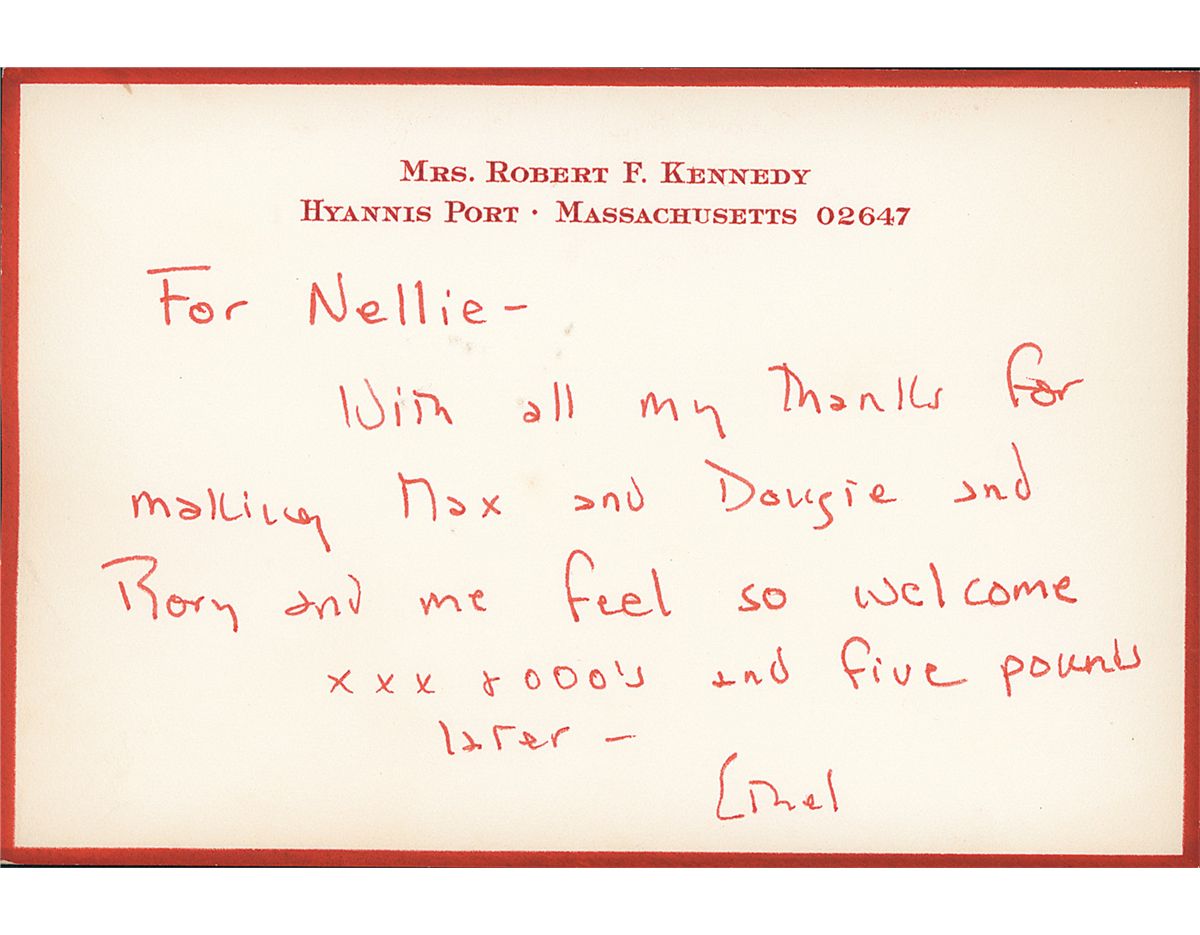 MRS. ROBERT F. KENNEDY
HYANNIS PORT · MASSACHUSETTS 02647
For Nellie –
With all my thanks for
making Max and Dougie and
Rory and me feel so welcome
x x x & 000's and five pounds
later –
Ethel